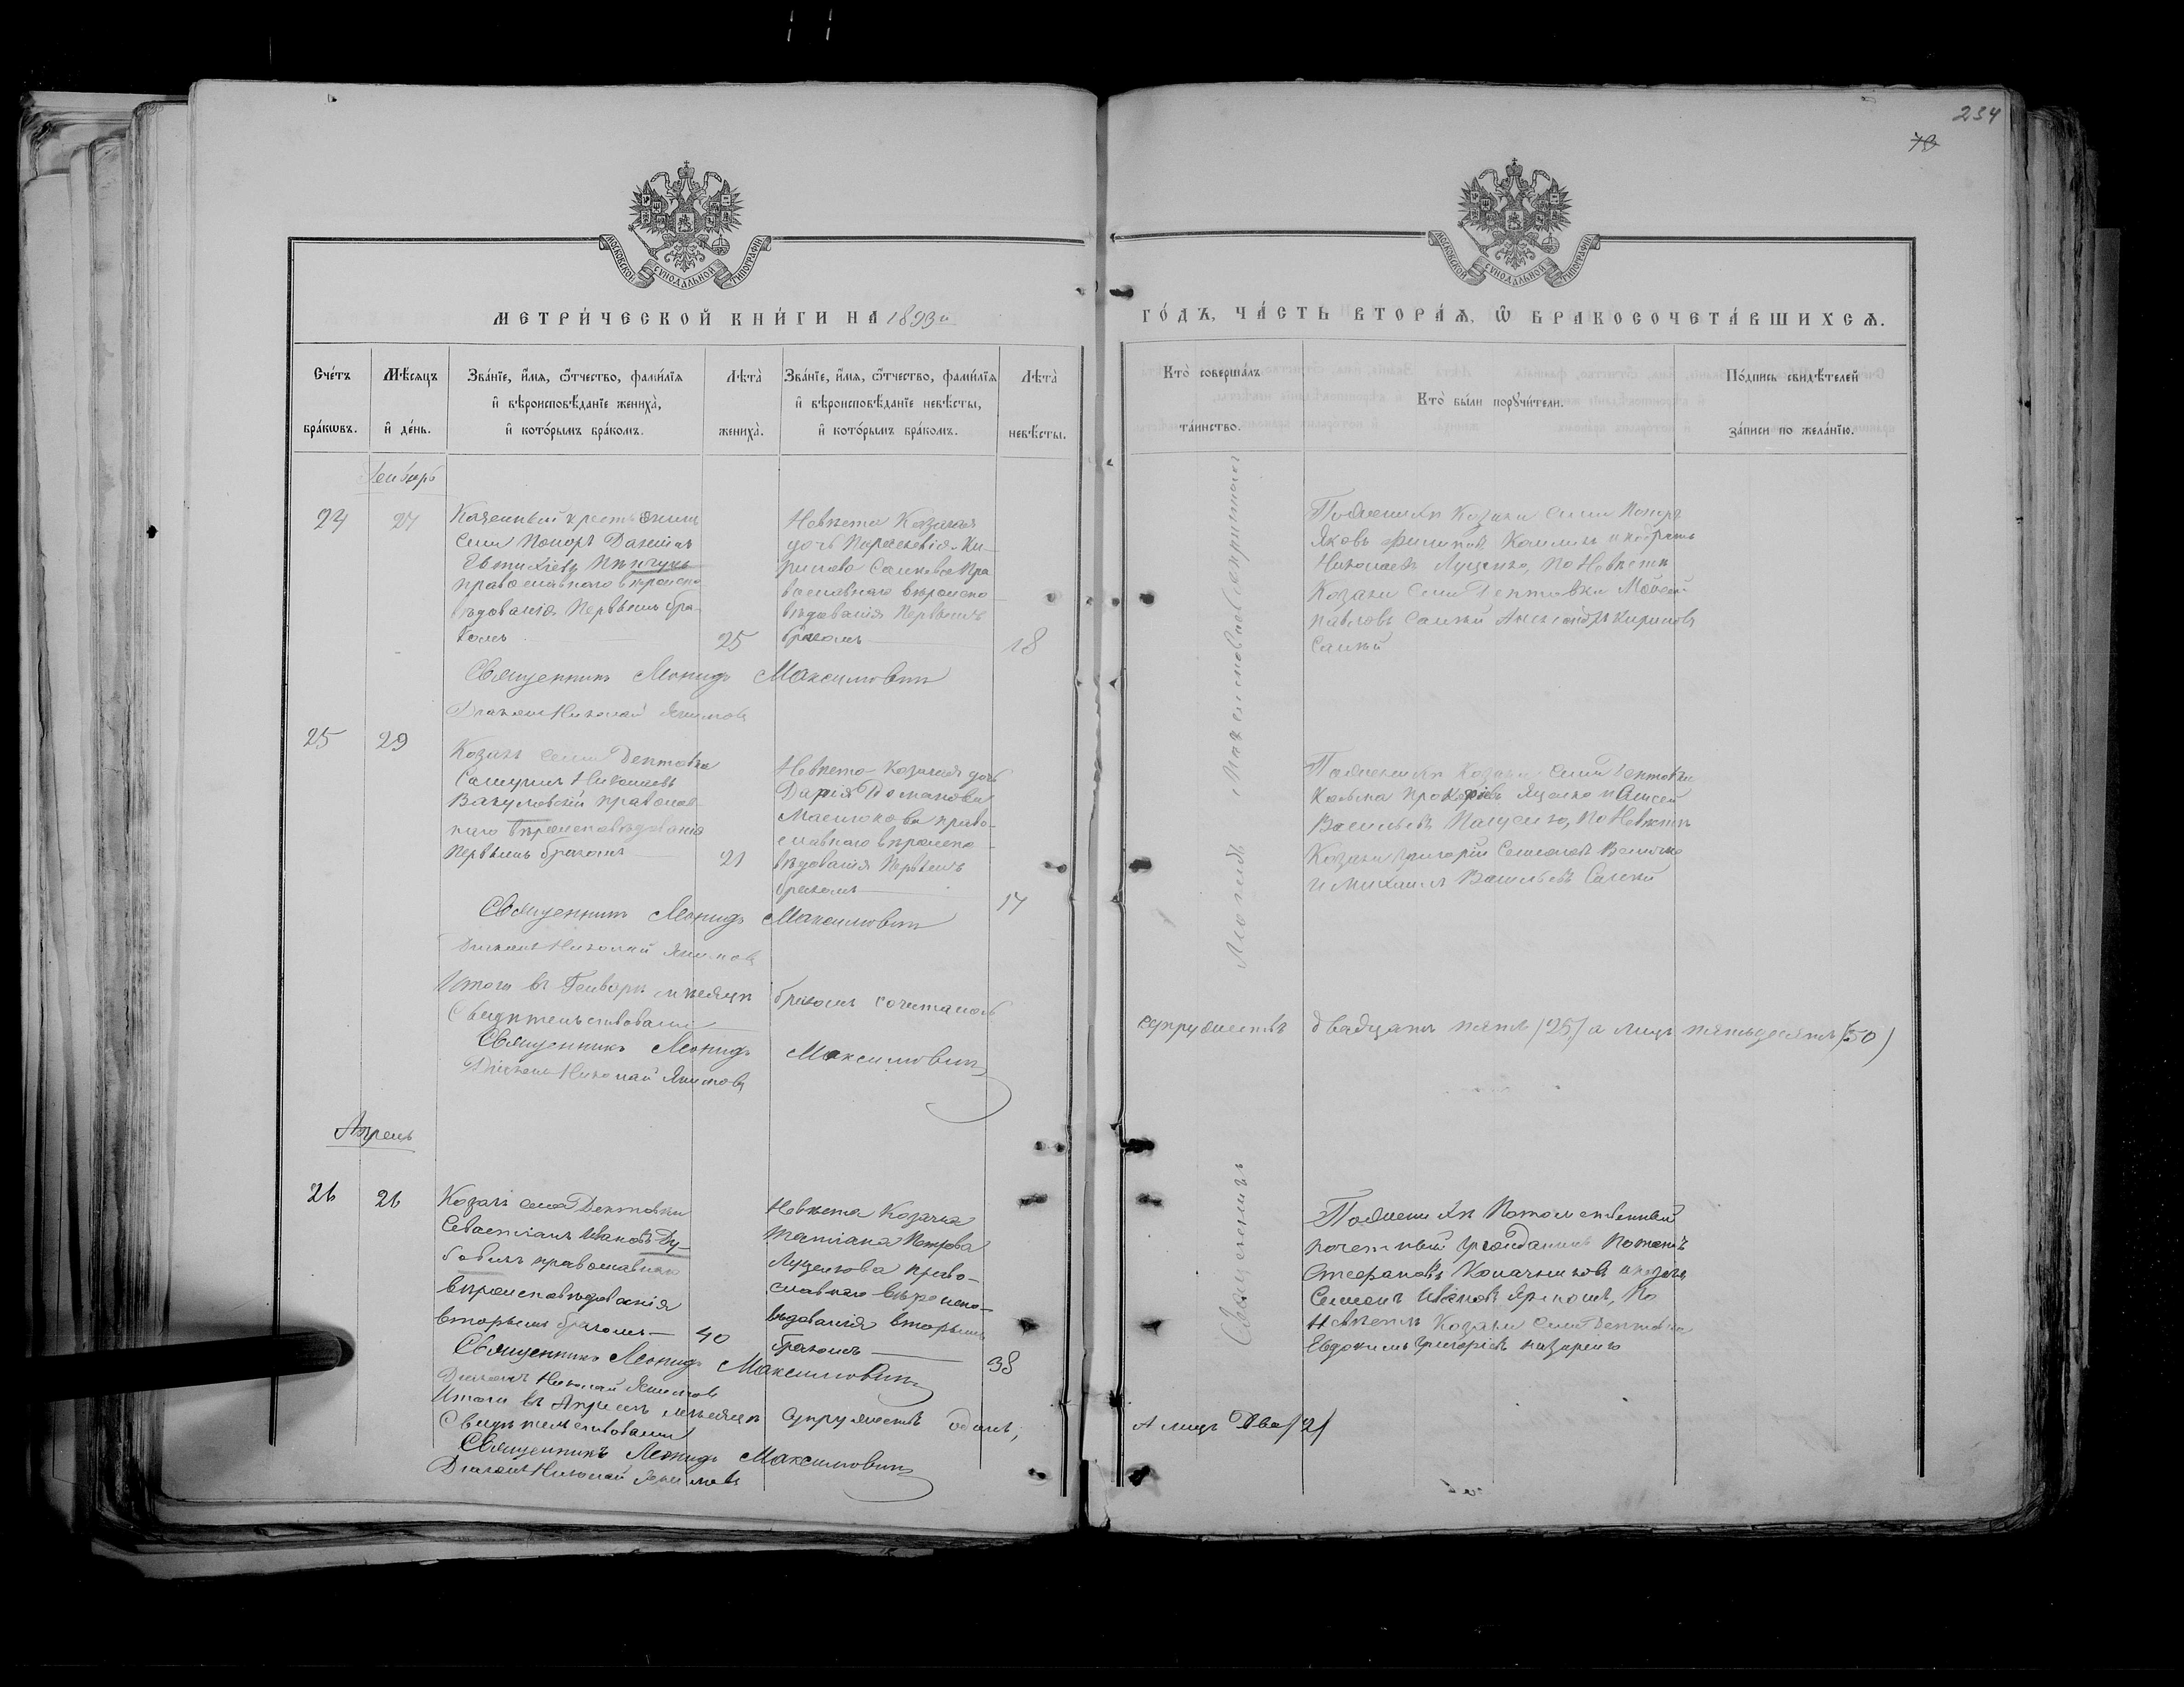 234
73
МОСКОВСКОЙ СѴНОДАЛЬНОЙ ТИПОГРАФІИ
МОСКОВСКОЙ СѴНОДАЛЬНОЙ ТИПОГРАФІИ
МЕТРИ́ЧЕСКОЙ КНИ́ГИ НА 1893й
ГО́ДЪ, ЧА́СТЬ ВТОРА́Ѧ, Ѿ БРАКОСОЧЕТА́ВШИХСѦ.
Сче́тъ бра́кωвъ.
Мѣ́сяцъ и҆ де́нь.
Зва́нїе, и҆́мѧ, ѻ҆́тчество, фами́лїѧ
и҆ вѣроисповѣ́данїе жениха̀,
и҆ кото́рымъ бра́комъ.
Лѣта̀ жениха̀.
Зва́нїе, и҆́мѧ, ѻ҆́тчество, фами́лїѧ
и҆ вѣроисповѣ́данїе невѣ́сты,
и҆ кото́рымъ бра́комъ.
Лѣта̀ невѣ́сты.
Кто̀ соверша́лъ та́инство.
Кто̀ бы́ли порꙋчи́тели.
По́дпись свидѣ́телей
за́писи по жела́нїю.
24
27
Казенный крестьянинъ
села Даніилъ
Евтихіевъ
православнаго вѣроиспо
вѣданія Первымъ бра-
комъ
25
Невѣста Козачья
дочь Параскевія Ки-
рилова Пра
вославнаго вѣроиспо
вѣданія Первымъ
бракомъ
18
По Женихѣ Козаки села
Яковъ Филиповъ
Николаевъ Луценко, По Невѣстѣ
Козаки села Дептовки Мойсей
Павловъ Салый Александръ Кириловъ
Салый
Священникъ Леонидъ Максимовичъ
Діаконъ Николай Якимовъ
25
29
Козакъ села Дептовки
Николаевъ
Вакуловскій православ-
наго Вѣроисповѣданія
Первымъ бракомъ
21
Невѣста Козачая дочь
Дарія Романова
Масюкова право-
славнаго вѣроиспо-
вѣданія Первымъ
бракомъ
17
По Женихѣ Козаки села Дептовки
Козьма Прокофіевъ Яценко и
Васильевъ По Невѣстѣ
Козаки Григорій Семеновъ
и Михаилъ Васильевъ Салый
Священникъ Леонидъ Максимовичъ
Діаконъ Николай Якимовъ
Итого въ Генварѣ мѣсяцѣ бракомъ сочталось
супружествъ двадцать пять (25) а лицъ пятьдесятъ (50)
Свидѣтельствовали
Священникъ Леонидъ Максимовичъ
Діаконъ Николай Якимовъ
Апрель
26
26
Козакъ села Дептовки
Севастіанъ Ивановъ Ду-
православнаго
вѣроисповѣданія
вторымъ бракомъ 40
Невѣста Козачка
Татіана Петрова
Луценкова право-
славнаго вѣроиспо-
вѣданія вторымъ
бракомъ
38
По Женихѣ Потомственный
почетный гражданинъ
Стефановъ и козакъ
Семенъ Ивановъ По
Невѣстѣ Козаки села Дептовки
Евдокимъ Григоріевъ Назаренко
Священникъ Леонидъ Максимовичъ
Діаконъ Николай Якимовъ
Итого въ Апрелѣ мѣсяцѣ супружествъ одинъ,
А лицъ Два (2)
Свидѣтельствовали
Священникъ Леонидъ Максимовичъ
Діаконъ Николай Якимовъ
Священникъ Леонидъ Максимовичъ